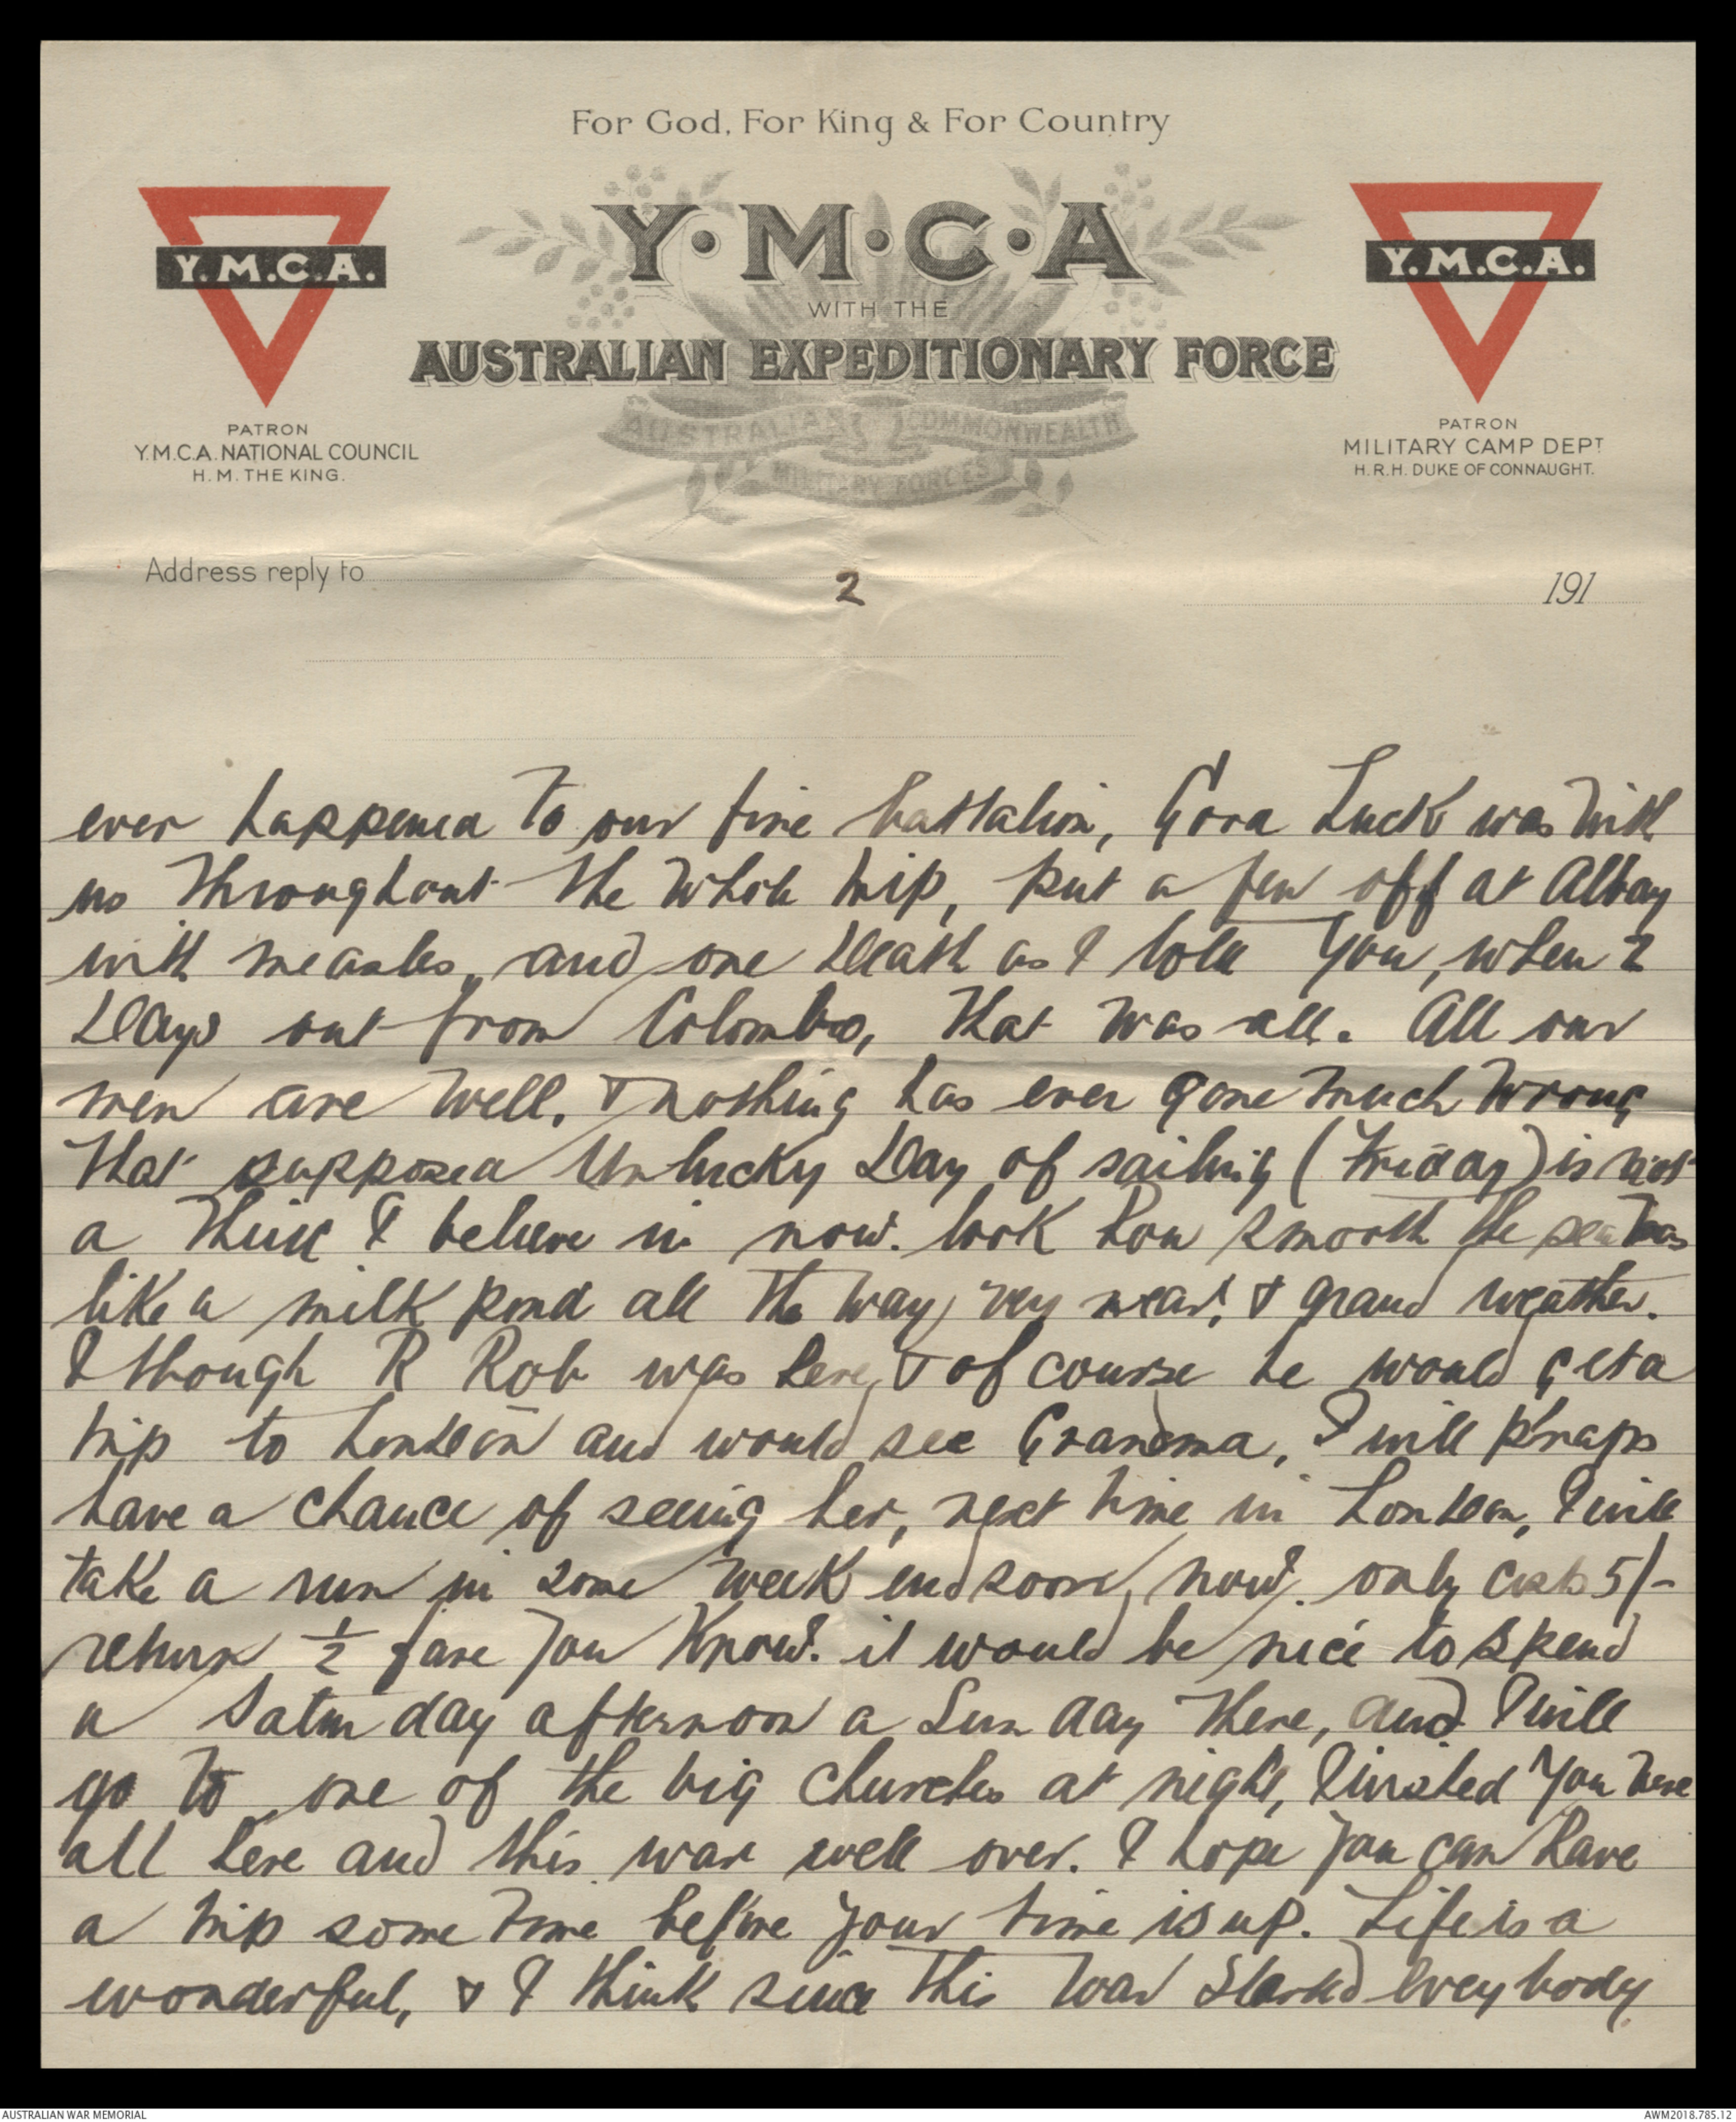 For God, For King & For Country
Y.M.C.A.
Y·M·C·A
Y.M.C.A.
WITH THE
AUSTRALIAN EXPEDITIONARY FORCE
AUSTRALIAN COMMONWEALTH
MILITARY FORCES
PATRON
Y.M.C.A. NATIONAL COUNCIL
H.M. THE KING.
PATRON
MILITARY CAMP DEPT
H.R.H. DUKE OF CONNAUGHT.
Address reply to 2 191
ever happened to our fine battalion, Good Luck was with
us throughout the whole trip, put a few off at Albany
with measles, and one death as I told you, when 2
days out from Colombo, that was all. All our
men are well, & nothing has ever gone much wrong
that supposed unlucky day of sailing (Friday) is not
a thing I believe in now. look how smooth the sea was
like a milk pond all the way, very near, & grand weather.
I though R Rob was here, & of course he would get a
trip to London and would see Grandma, I will p'raps
have a chance of seeing her, next time in London, I will
take a run in some week end soon, now. only costs 5/-
return ½ fare you know. it would be nice to spend
a Saturday afternoon a Sunday there, and I will
go to one of the big churches at night, I wished you were
all here and this war well over. I hope you can have
a trip some time before your time is up. Life is a
wonderful, & I think since this war started everybody
AUSTRALIAN WAR MEMORIAL
AWM2018.785.12